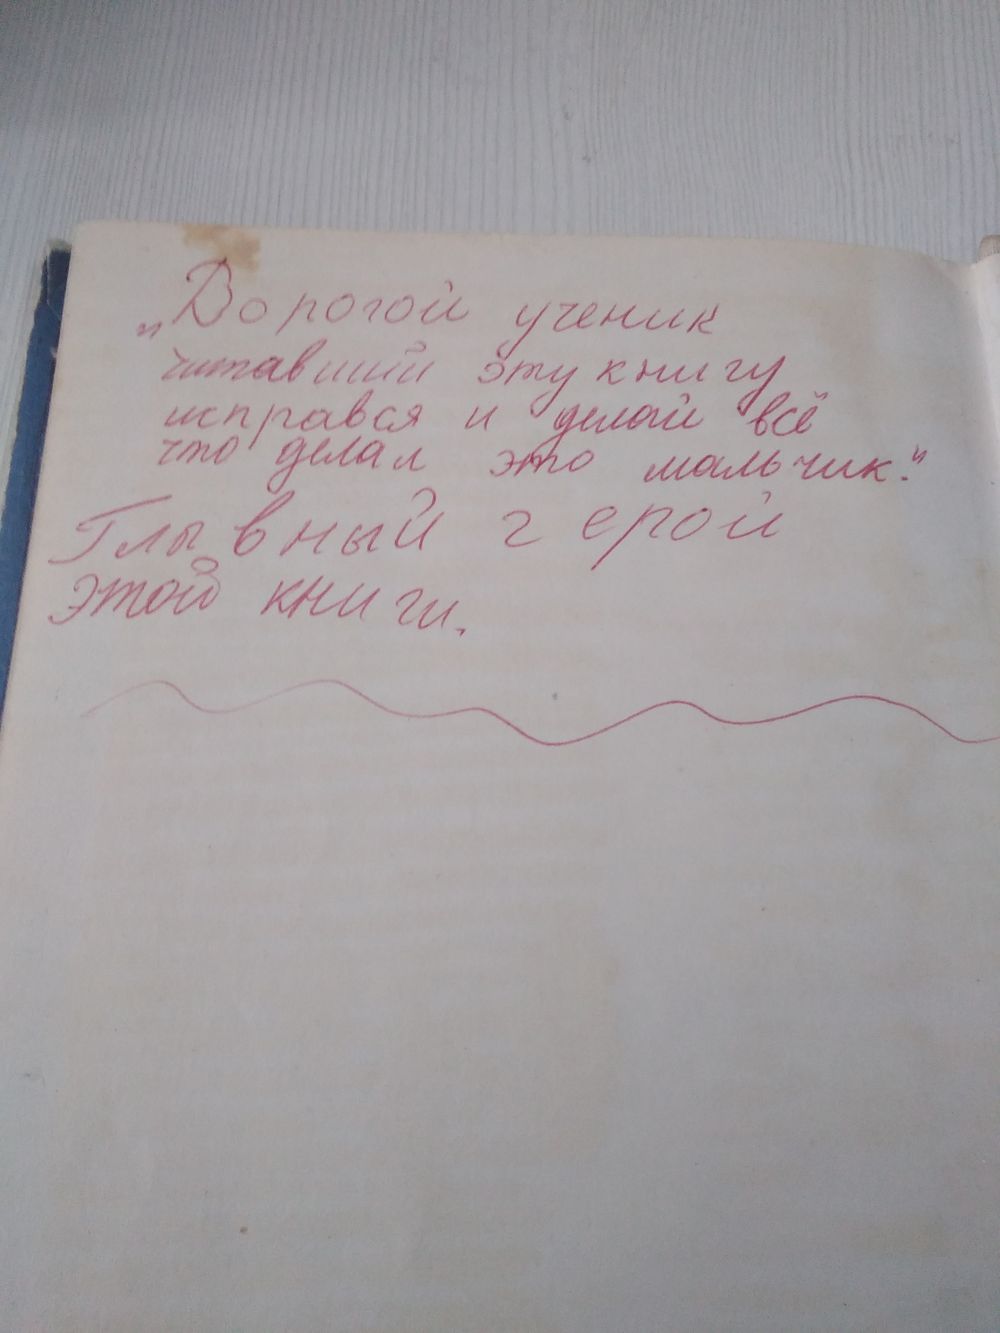 „Дорогой ученик
читавший эту книгу
исправся и делай всё
что делал это мальчик."
Глывный герой
этой книги.